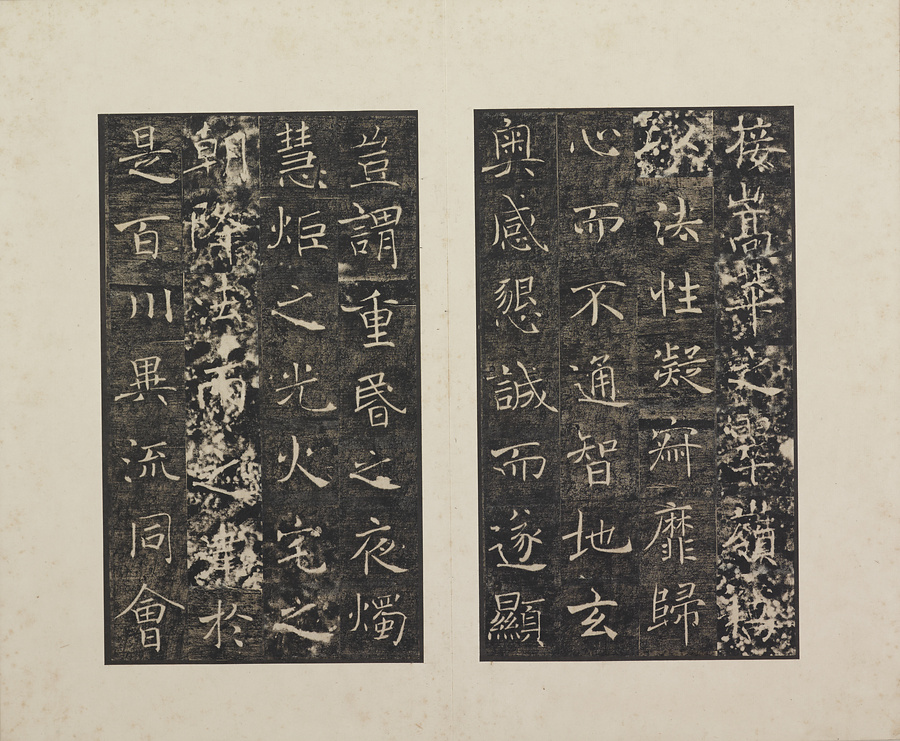 接嵩華之翠嶺
以法性凝寂靡歸
心而不通智地玄
奧感懇誠而遂顯
豈謂重昬之夜燭
慧炬之光火宅之
朝降法雨之澤於
是百川異流同會